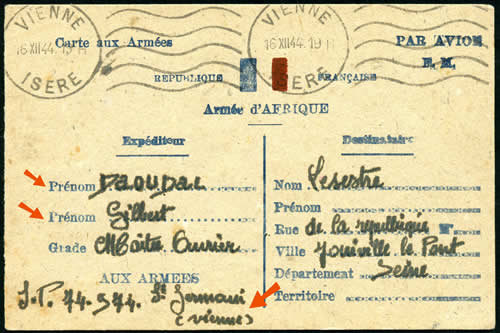 VIENNE
16 XII 44. 19 H
ISERE
VIENNE
16 XII 44. 19 H
ISERE
Carte aux Armées
PAR AVION
F. M.
REPUBLIQUE FRANÇAISE
Armée d'AFRIQUE
Expéditeur
Prénom
Prénom Gilbert
Grade Maître Ouvrier
AUX ARMEES
S.P. 74-574 St Germain
(Vienne)
Destinataire
Nom Lesestre
Prénom
Rue de la republique N°
Ville Joinville le Pont
Département Seine
Territoire